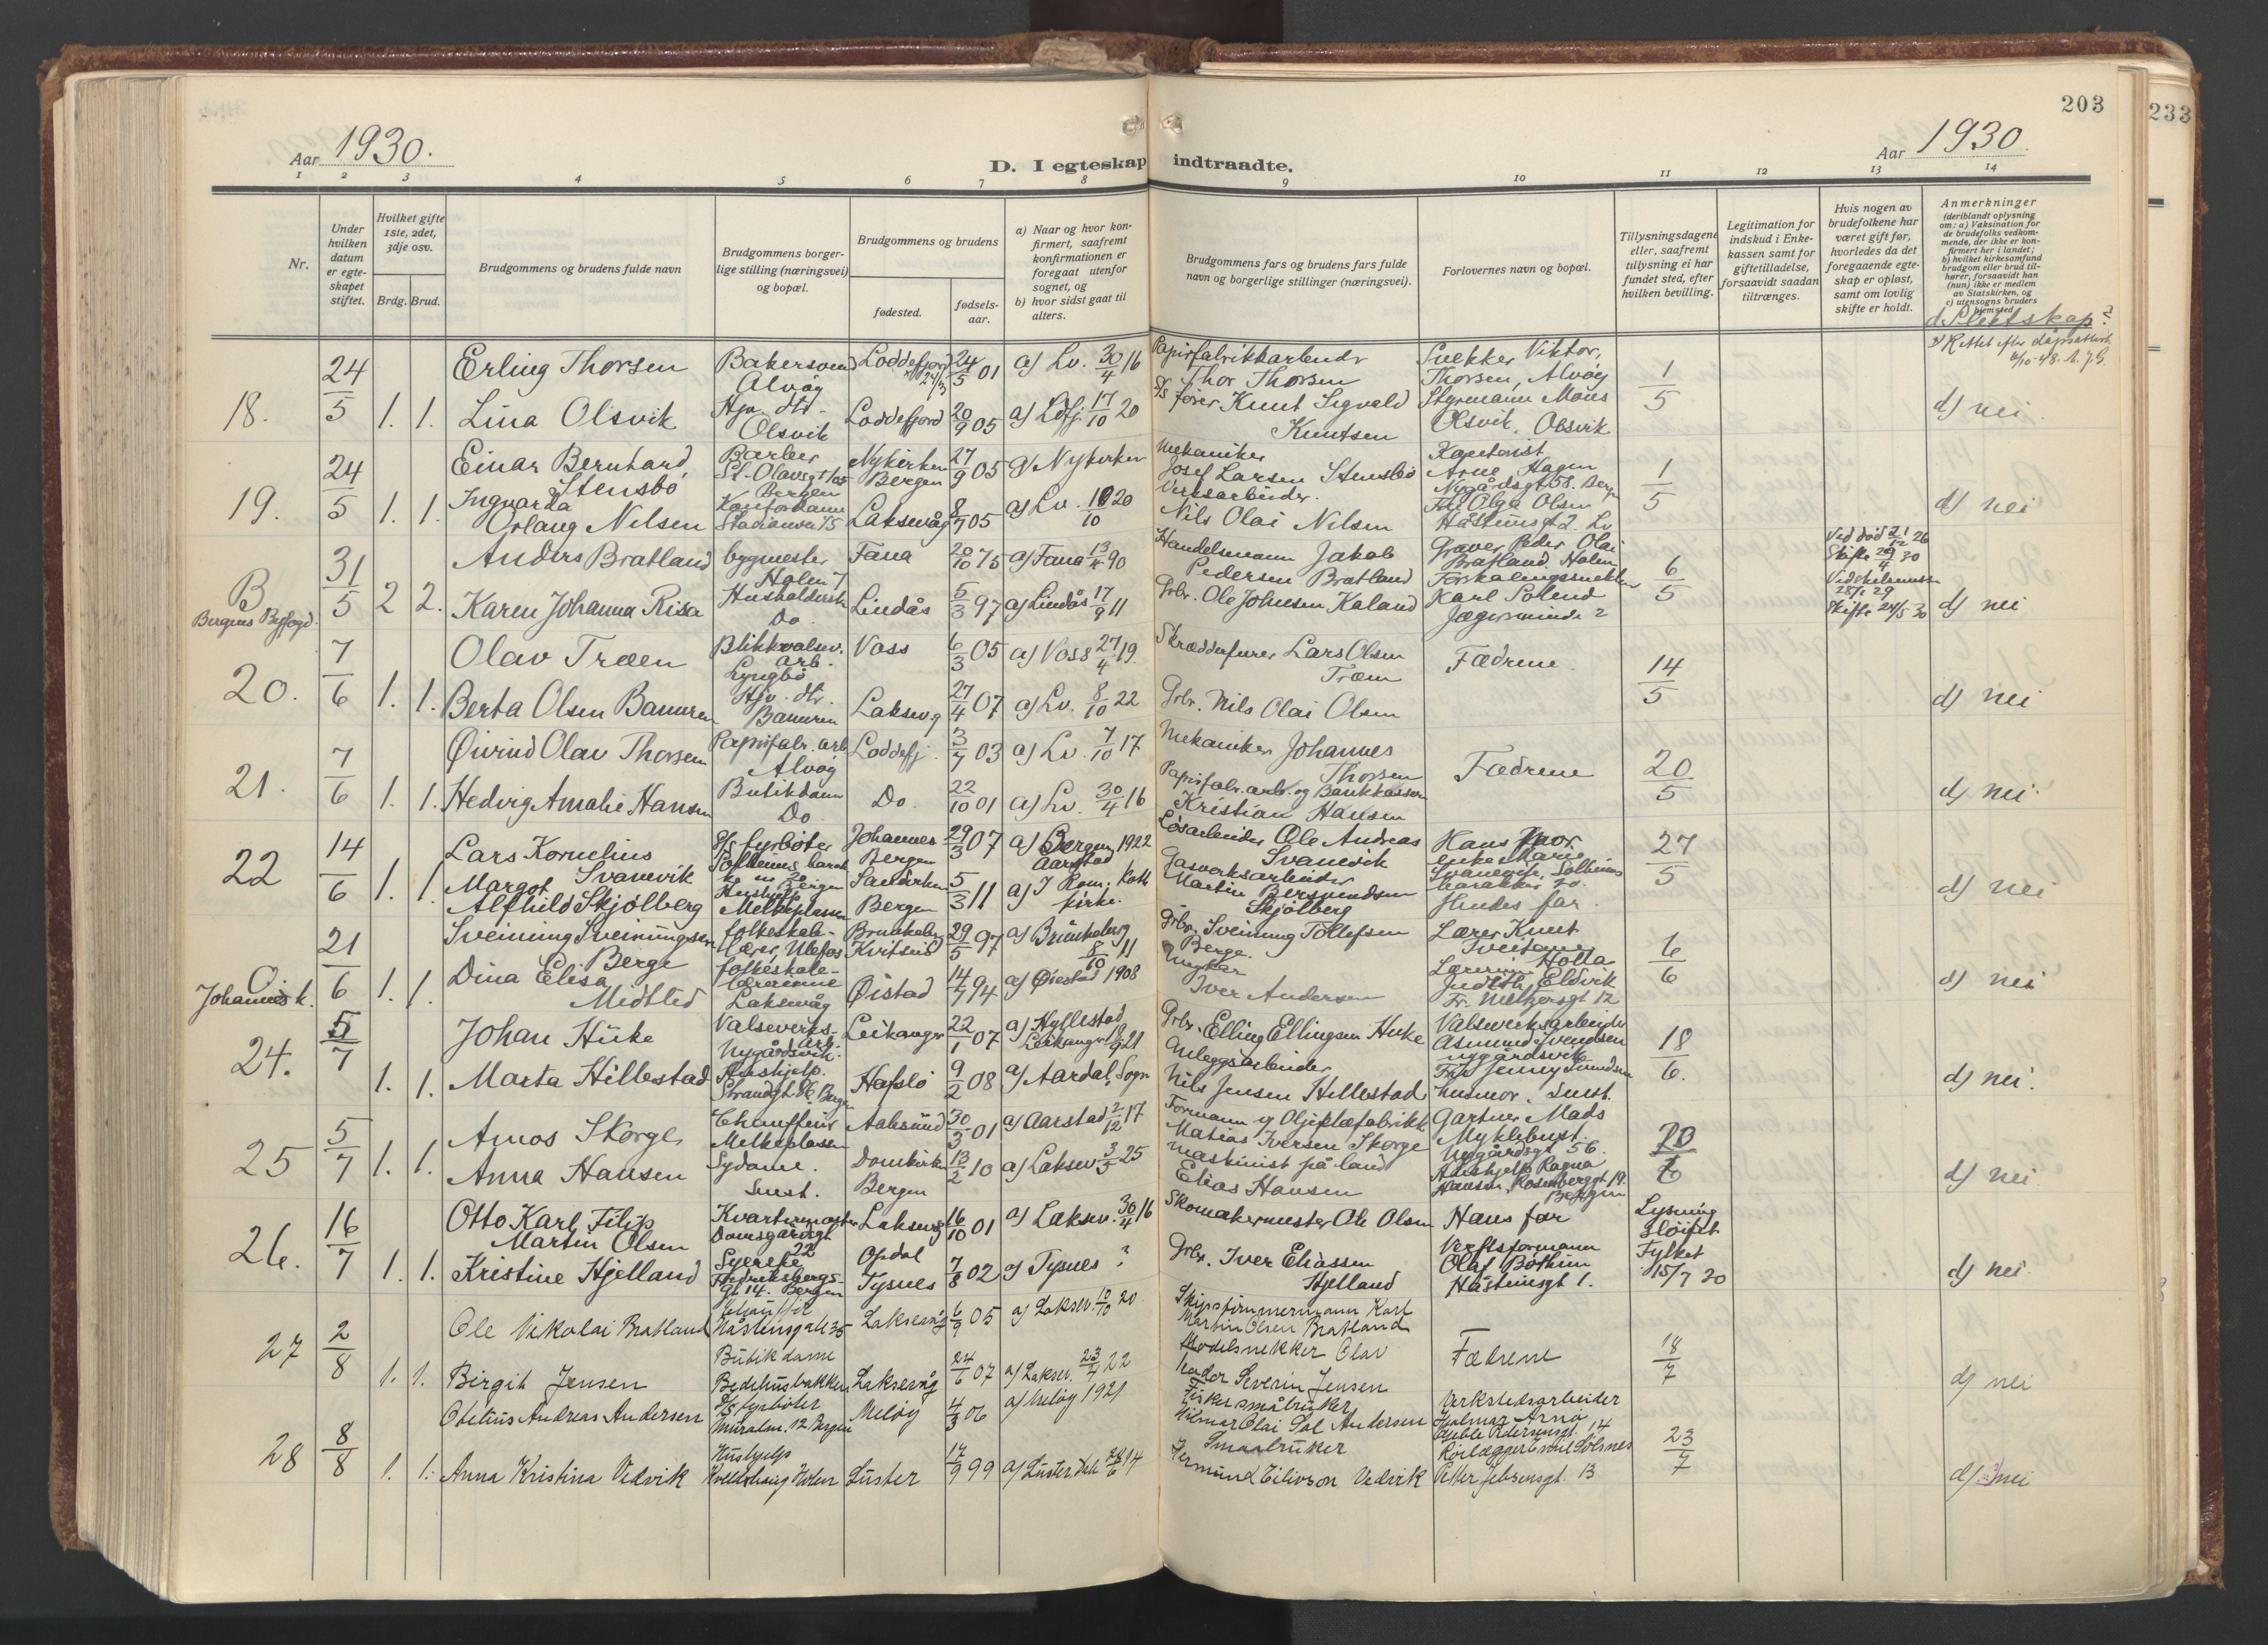 203
233
Aar 1930.
D. I egteskap indtraadte.
Aar 1930.
1 2 3 4 5 6 7 8 9 10 11 12 13 14
Nr.
Under hvilken datum er egteskapet stiftet.
Hvilket gifte 1ste, 2det, 3dje osv.
Brdg. Brud.
Brudgommens og brudens fulde navn
Brudgommens borgerlige stilling (næringsvei) og bopæl.
Brudgommens og brudens
fødested.
fødselsaar.
a) Naar og hvor konfirmert, saafremt konfirmationen er foregaat utenfor sognet, og
b) hvor sidst gaat til alters.
Brudgommens fars og brudens fars fulde navn og borgerlige stillinger (næringsvei).
Forlovernes navn og bopæl.
Tillysningsdagene eller, saafremt tillysning ei har fundet sted, efter hvilken bevilling.
Legitimation for indskud i Enkekassen samt for giftetilladelse, forsaavidt saadan tiltrænges.
Hvis nogen av brudefolkene har været gift før, hvorledes da det foregaaende egteskap er opløst, samt om lovlig skifte er holdt.
Anmerkninger
(deriblandt oplysning om: a) Vaksination for de brudefolks vedkommende, der ikke er konfirmert her i landet;
b) hvilket kirkesamfund brudgom eller brud tilhører, forsaavidt han (hun) ikke er medlem av Statskirken, og
c) utensogns bruders hjemsted.
d. Slektskap?
18. 24/5 1. 1.
Erling Thorsen Bakersvend Alvøy Loddefjord 24/5 01 a) Lv. 30/4 16
Papirfabrikkarbeider Thor Thorsen Snekker Viktor Thorsen, Alvøy 1/5
Lina Olsvik Hjv. dtr. Olsvik Loddefjord 20/9 05 a) Ldfj. 17/10 20
D/s fører Knut Sigvald Knutsen Styrmann Mons Olsvik, Olsvik d) nei.
19. 24/5 1. 1.
Einar Bernhard Stensbö Barber Bergen Nykirken Bergen 27/9 05 a) Nykirken
Mekaniker Josef Larsen Stensbö Arne Hagen Nygårdsgt 58. 1/5
Ingvarda Orlaug Nilsen Laksevåg 8/7 05 a) Lv. 20
Verksarbeider. Nils Olai Nilsen Frk Olga Olsen Håsteinsgt 2. Lv d) nei
B Bergens Byfogd. 31/5 2 2.
Anders Bratland bygmester Holen Fana 20/10 75 a) Fana 13/4 90
Handelsmann Jakob Pedersen Bratland Graver Peder Olai Bratland. Holen 6/5
Karen Johanna Risa Husholderske Do. Lindås 5/3 97 a) Lindås 17/9 11
Grbr. Ole Johnsen Kaland Karl Solend Jægersminde 2
Ved död Skifte 29/4 30
Skifte 24/5 30 d) nei
20. 7/6 1. 1.
Olav Træen Blikkvalsev. arb. Lyngbö Voss 6/3 05 a) Voss 27/4 19.
Skræddersvend Lars Olsen Træen Fædrene. 14/5
Berta Olsen Bamren Hjv. dtr. Laksevg 27/4 07 a) Lv. 8/10 22
Grbr. Nils Olai Olsen d) nei
21. 7/6 1. 1.
Øivind Olav Thorsen Papirfabr. arb. Alvøy Loddefj. 3/7 03 a) Lv. 7/10 17
Mekaniker Johannes Thorsen Fædrene 20/5
Hedvig Amalie Hansen Butikdame Do. Do. 22/10 01 a) Lv. 30/4 16
Papirfabr. arb. og Bankkasserer Kristian Hansen d) nei.
22 14/6 1. 1.
Lars Kornelius Svanevik D/s fyrböter Johannes Bergen 29/3 07 a) Bergen, 1922 Aarstad
Lösarbeider Ole Andreas Svanevik Hans mor enke Marie Svanevik, Solheims barakker 20. 27/5
Margot Alfhild Skjölberg Melkeplassen Bergen 5/3 11 a) I Rom. Kath kirke.
Gasverksarbeider Martin Skjölberg Hendes far. d) nei
O. Johannesk. 21/6 1. 1.
Sveinung Sveinungsen Berge folkeskolelærer, Ulefos Brunkeberg Kvitseid 29/5 97 a) Brunkeberg 8/10 11
Grbr. Sveinung Tollefsen Berge. Lærer Knut Holla 6/6
Dina Elisa Midtled folkeskolelærerinne Laksevåg Øistad 14/7 94 a) Øiestad 1908
Iver Andersen Judith Eldvik Fr. Meltzersgt 12 d) nei
24. 5/7 1. 1.
Johan Huke Valseverksarb. Nygårdsvik. Leikanger 22/1 07 a) Hyllestad
Grbr. Elling Ellingsen Huke Valseverksarbeider Asmund Svendsen Nygårdsvik 18/6.
Marta Hillestad Hushjelp. Strandgt. Bergen Hafslo 9/2 08 a) Aardal, Sogn
Anleggsarbeider Nils Jensen Hillestad husmor. d) nei.
25 5/7 1. 1.
Amos Skorge Chauffeur Melkeplassen Aalesund 30/3 01 a) Aarstad 2/12 17
Formann Matias Iversen Skorge Gartner Mads Myklebust. Nygårdsgt 56. 20/6
Anna Hansen Sydame. Domkirken Bergen 13/2 10 a) Laksev. 3/5 25
Maskinist på land Elias Hansen Hushjelp Ragna Hansen, Rosenberggt 19. Bergen d) nei.
26. 16/7 1. 1.
Otto Karl Filip Martin Olsen Kvartermester Damsgårdsgt 22 Laksevg 16/10 01 a) Laksev. 30/4 16
Skomakermester Ole Olsen Hans far Lysning sløifet. Fylket 15/7 30
Kristine Hjelland Syerske Fredriksbergsgt 14. Bergen Opdal Tysnes 7/8 02 a) Tysnes ?
Grbr. Iver Eliassen Hjelland Verftsformann Olaf Böthun Håsteinsgt 1. d) nei.
27 2/8 1. 1.
Ole Nikolai Bratland Chauffør Håsteinsgate 35 Laksevåg 6/9 05 a) Laksev. 10/10 20
Skipstømmermann Karl Martin Olsen Bratland Fædrene 18/7
Birgit Jensen Butikdame Bedehusbakken Laksevåg 24/6 07 a) Laksev. 23/4 22
Modelsnekker Olav Peder Severin Jensen d) nei
28 8/8 1. 1.
Obelius Andreas Andersen D/s fyrböter Muralm. 12 Bergen Meløy 4/3 06 a) Meløy 1921
Fisker småbruker Hilmar Olai Sal Andersen Verkstedsarbeider Hjalmar Arna 23/7
Anna Kristina Vedvik Hushjelp Holen Luster 17/9 99 a) Luster 14
Smaabruker Vermund Eilivson Vedvik Petter Jebsensgt. 13 d) nei